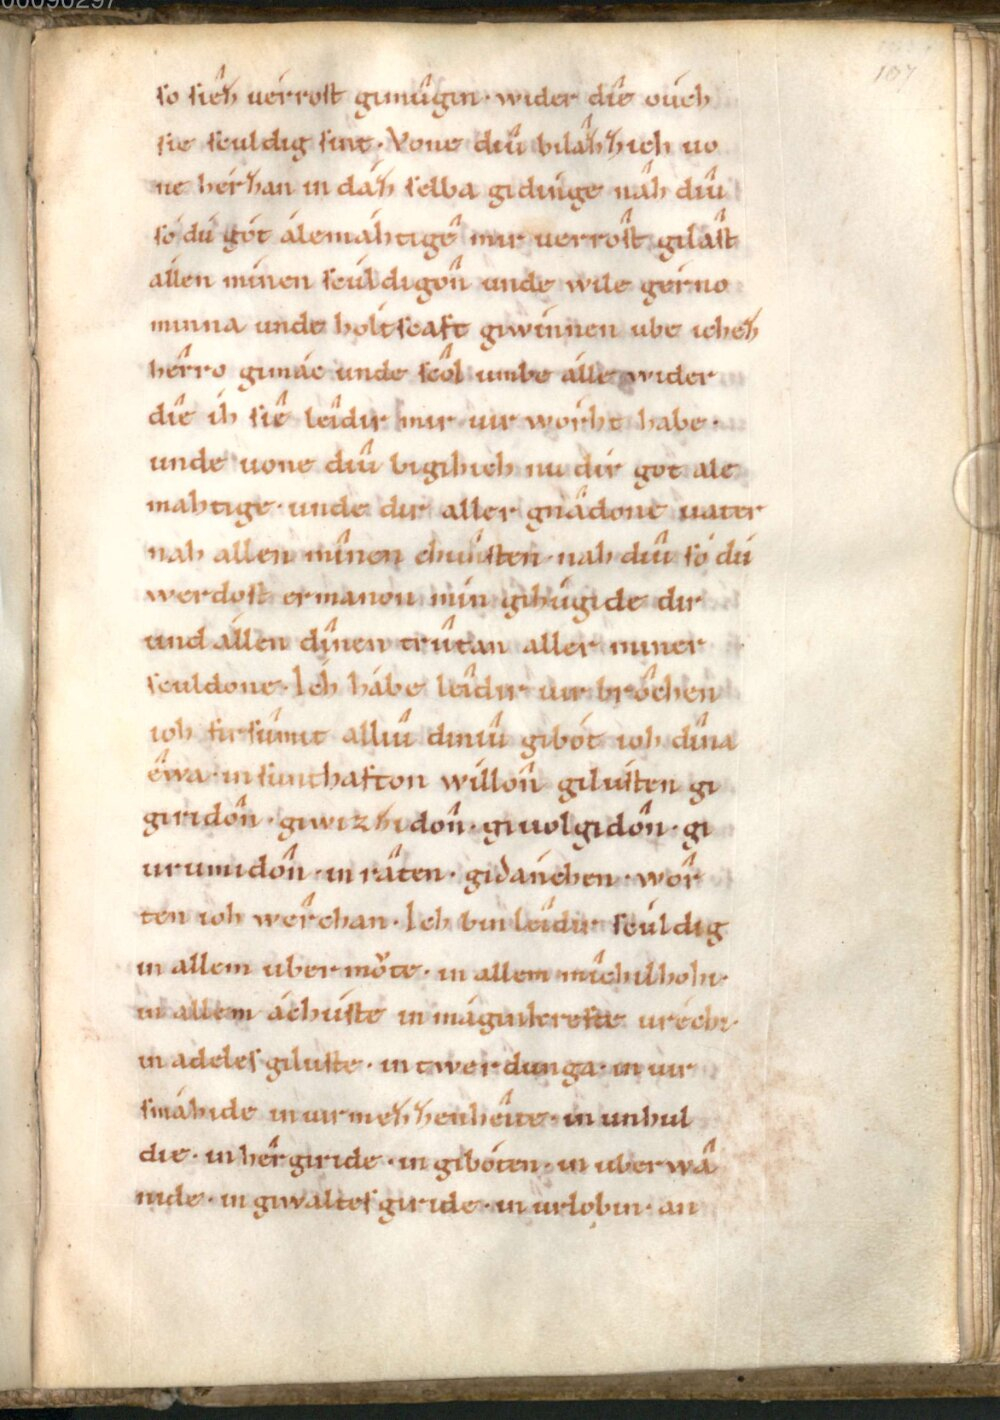 00090297
107
ſo ſiêh uérroſt gimûgin · wider diê oúch
ſie ſculdig ſint · Vone diû bilâhhich uo
ne hérhan in dáh ſelba gidinge nâh diû
ſó dú gót álemáhtigê mir uerrôſt gilâſt
állen mínen ſcúldigôn unde wile gérno
minna unde holtſcaft giwinnen ube icheh
hêrro gimác unde ſcôl umbe álle wider
diê ih ſiê leîdir mir uir wórht habe ·
unde uone diû bigihich nu dír got ale
mahtige · unde dir aller gnâdone uater
nah allen mînen chunſten · nah diû ſó dú
werdoſt ermanon mín gihúgide dir
und állen dînen trûtan aller miner
ſculdone · Ich hábe leîdir uir brôchen
ioh firſúmit alliû diniû gibót ioh dîna
êwa · in ſunthafton willôn giluſten gi
giridôn · giwizhidôn · giuolgidôn · gi
urumidôn · in râten · gidánchen · wôr
ten ioh wérchan · Ich bin leîdir ſcúldig
in allem ubermôte · in allem míchilhohi ·
in allem áchúſte in máginkrefte uréchi ·
in adeleſ giluſte · in twerdunga · in uir
ſmáhide in uirmehhenheîte · in unhul
die · in hêrgiride · in gibóten · in uberwâ
nide · in giwalteſ giride · in urlobin · an